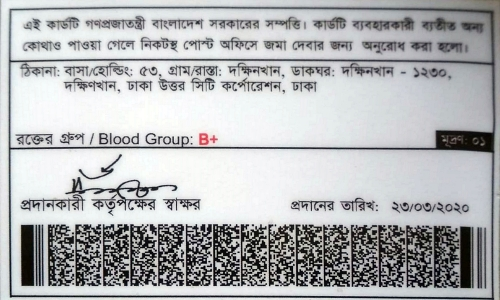 এই কার্ডটি গণপ্রজাতন্ত্রী বাংলাদেশ সরকারের সম্পত্তি। কার্ডটি ব্যবহারকারী ব্যতীত অন্য
কোথাও পাওয়া গেলে নিকটস্থ পোস্ট অফিসে জমা দেবার জন্য অনুরোধ করা হলো।
ঠিকানা: বাসা/হোল্ডিং: ৫৩, গ্রাম/রাস্তা: দক্ষিনখান, ডাকঘর: দক্ষিনখান - ১২৩০,
দক্ষিণখান, ঢাকা উত্তর সিটি কর্পোরেশন, ঢাকা
রক্তের গ্রুপ / Blood Group: B+
মূদ্রণ: ০১
প্রদানকারী কর্তৃপক্ষের স্বাক্ষর
প্রদানের তারিখ: ২৩/০৩/২০২০